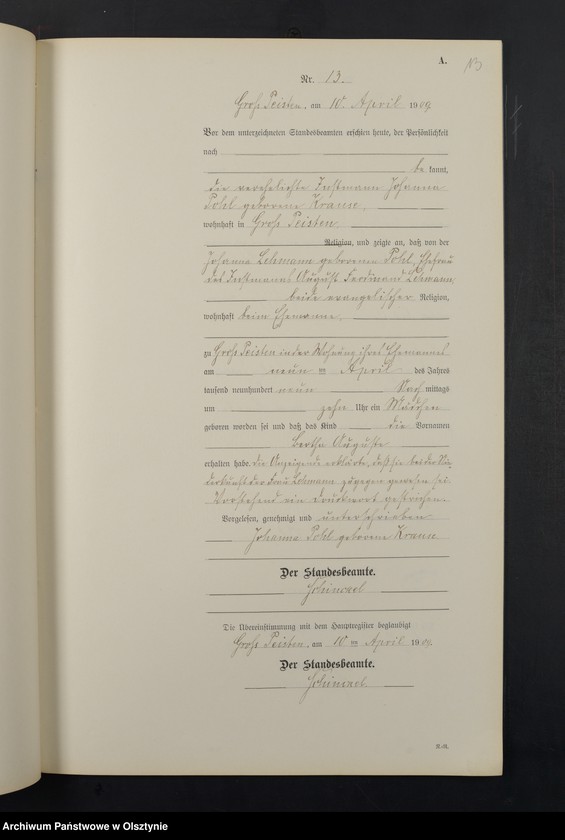 A.
Nr. 13.
Groß Peisten, am 10ten April 1909
Vor dem unterzeichneten Standesbeamten erschien heute, der Persönlichkeit
nach
be kannt,
die verehelichte Instmann Johanna
Pohl geborene Krause,
wohnhaft in Groß Peisten
Religion, und zeigte an, daß von der
Johanna Lehmann geborenen Pohl, Ehefrau
des Instmanns August Ferdinand Lehmann,
beide evangelischer Religion,
wohnhaft beim Ehemanne,
zu Groß Peisten in der Wohnung ihres Ehemannes
am neun ten April des Jahres
tausend neunhundert neun Nach mittags
um zehn Uhr ein Mädchen
geboren worden sei und daß das Kind die Vornamen
Bertha Auguste
erhalten habe. Die Anzeigende erklärte, daß sie bei der Nie-
derkunft der Frau Lehmann zugegen gewesen sei.
Vorstehend ein Druckwort gestrichen.
Vorgelesen, genehmigt und unterschrieben
Johanna Pohl geborene Krause
Der Standesbeamte.
Die Übereinstimmung mit dem Hauptregister beglaubigt
Groß Peisten, am 10 ten April 1909.
Der Standesbeamte.
Archiwum Państwowe w Olsztynie